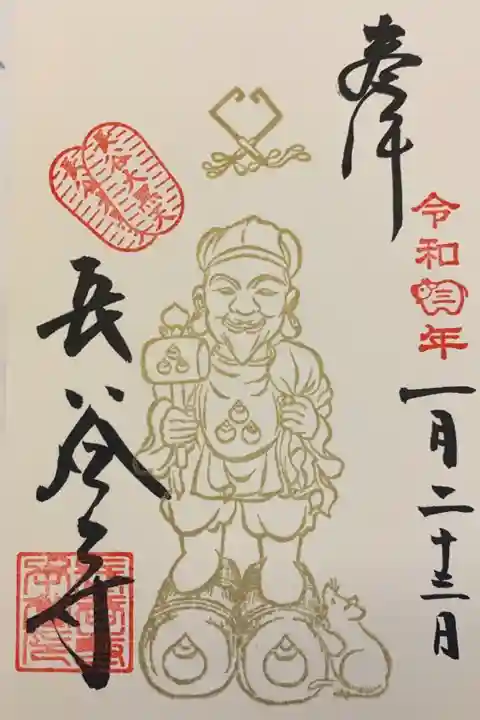 奉拝
令和三年
一月二十三日
長谷寺